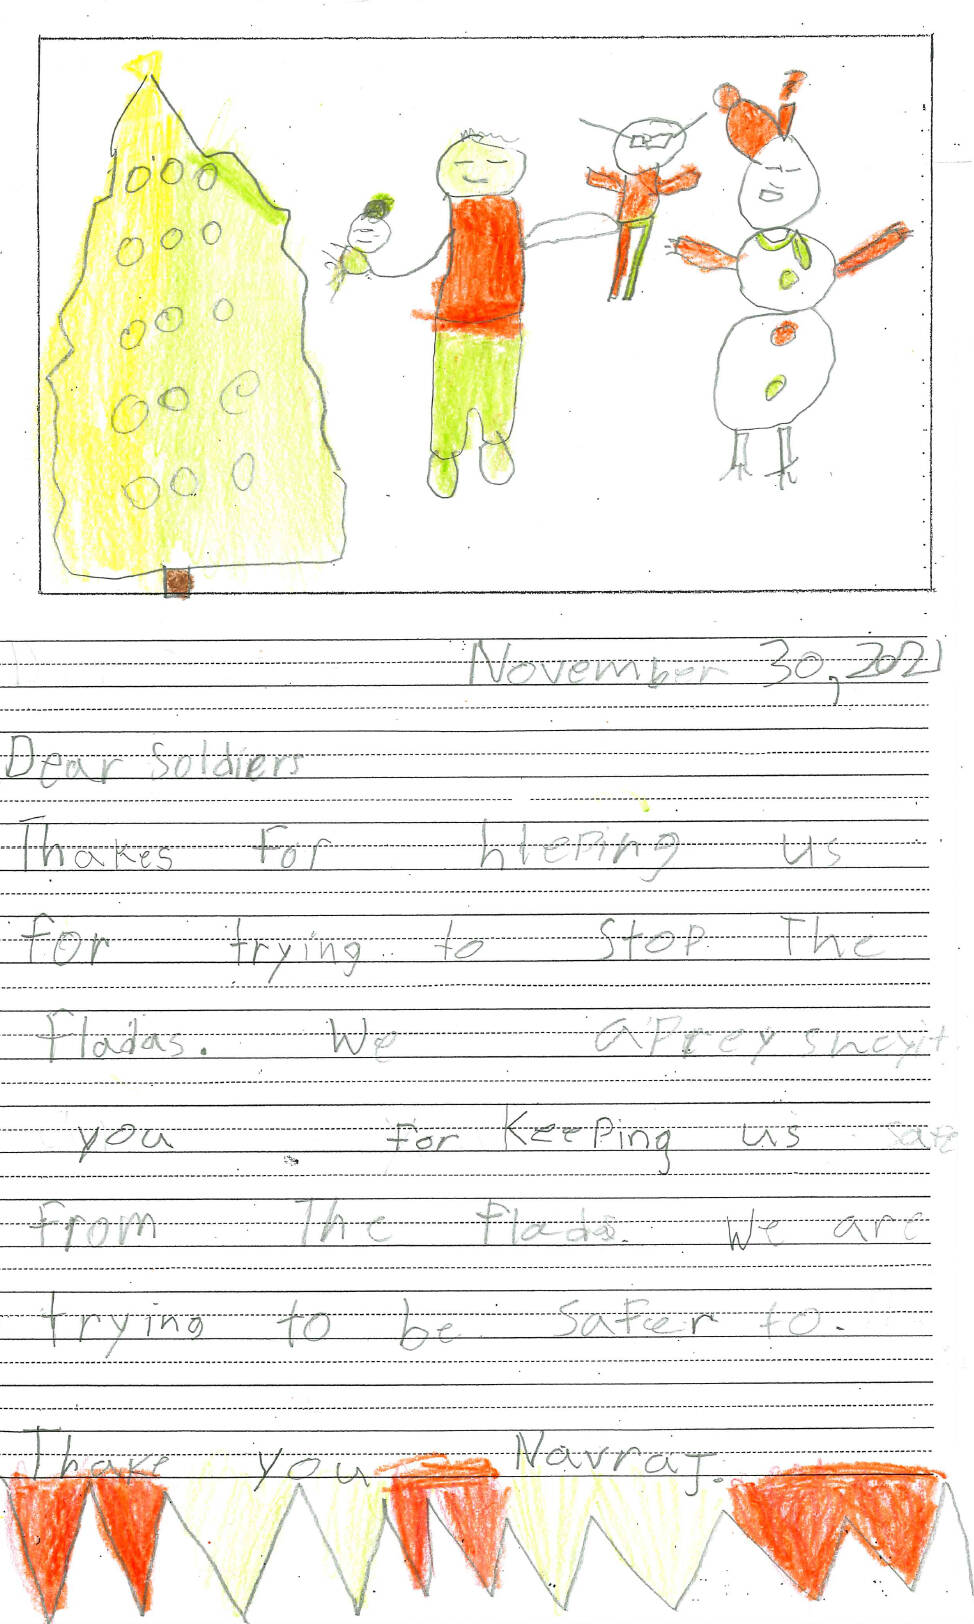 November 30, 2021
Dear Soldiers
Thakes for hleping us
for trying to stop The
fladas. We aPreysncyit
you for keePing us safe
from The flads. We are
trying to be safeer to.
Thake you Navraj.